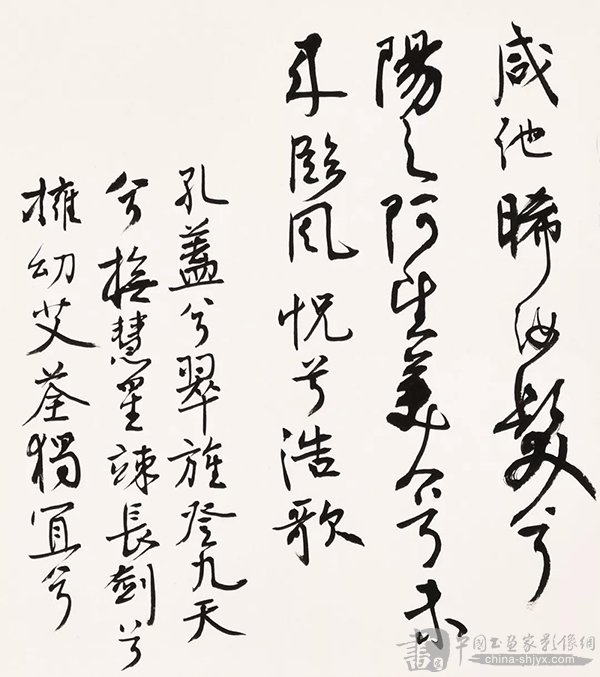 咸池晞汝髮兮
陽之阿望美人兮未
来臨風怳兮浩歌
孔蓋兮翠旌登九天
兮撫慧星竦長劍兮
擁幼艾荃獨宜兮
中国书画家影像網
china-shjyx.com